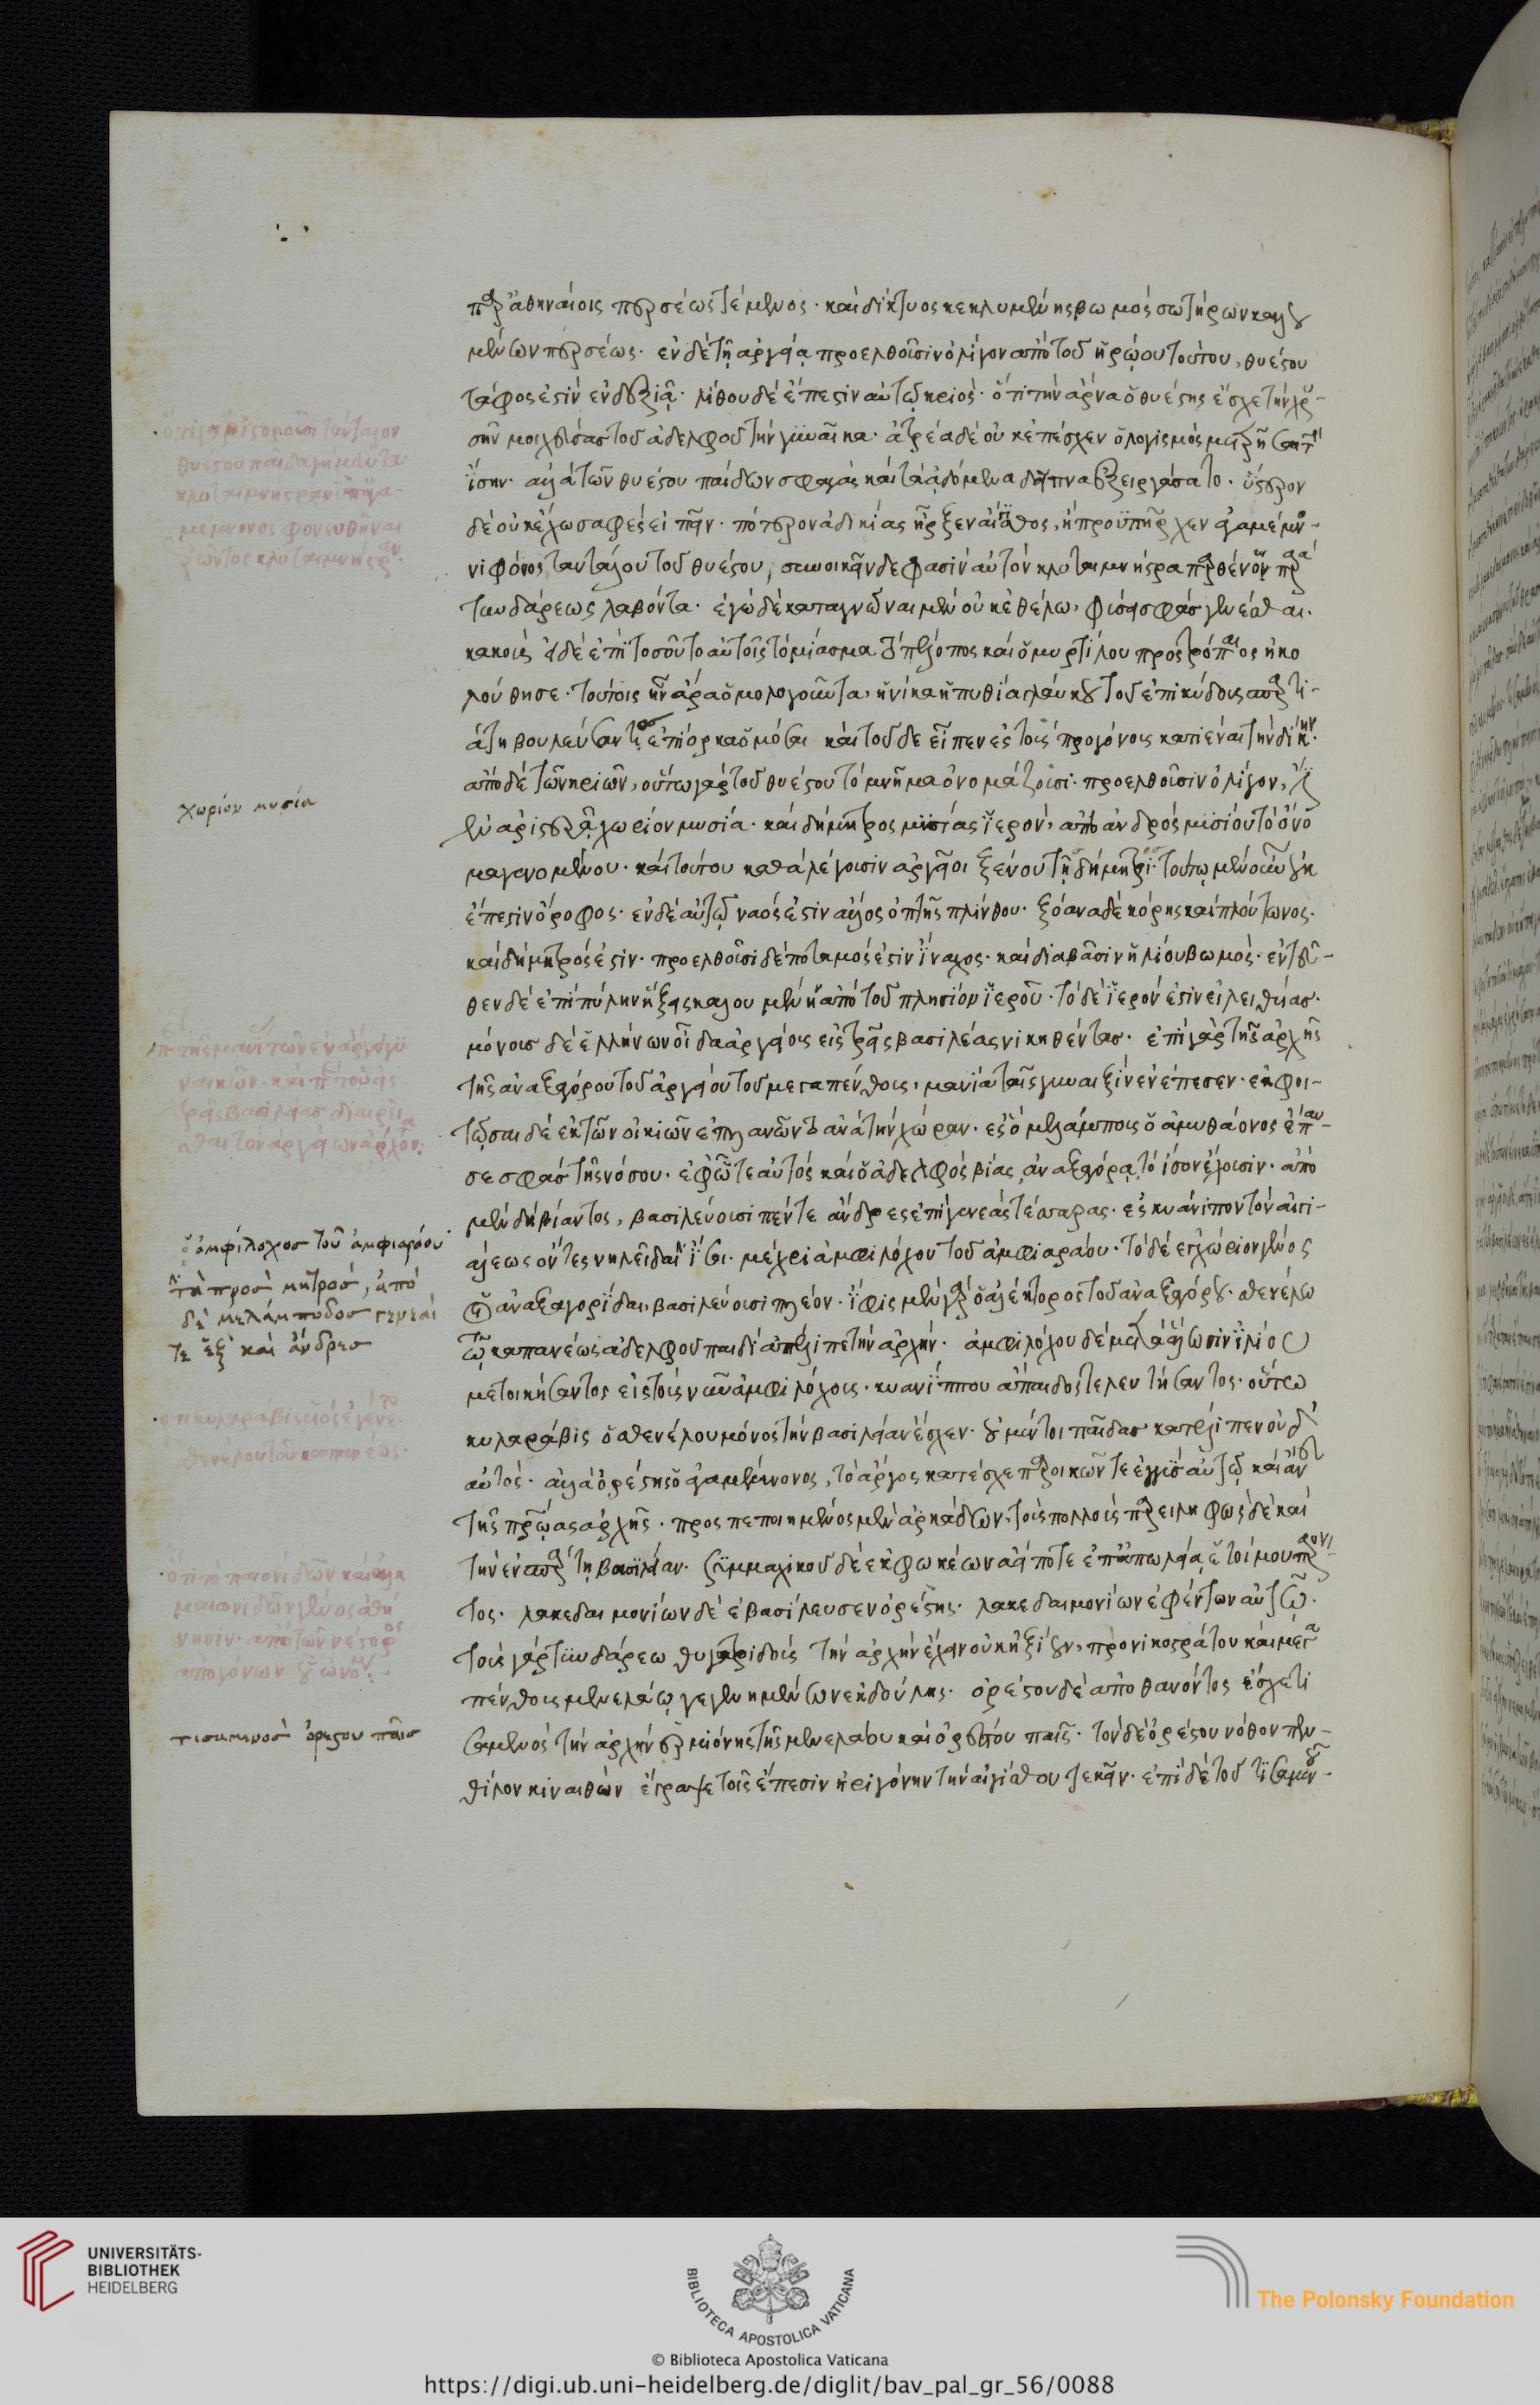 παρ ἀθηναίοις περσέως τέμενος· καὶ δίκτυος κεκλυμένης βωμός σωτήρων καλου
μένων περσέως· ἐν δὲ τῆ ἀργεία προελθοῦσιν ὀλίγον ἀπὸ τοῦ ἡρώου τούτου, θυέστου
τάφος ἐστὶν ἐν δεξιᾷ· λίθου δὲ ἔπεστιν αὐτῷ κριός· ὅτι τὴν ἄρνα ὁ θυέστης ἔσχε τὴν χρυ-
σῆν μοιχεύσας τοῦ ἀδελφοῦ τὴν γυναῖκα· ἀτρέα δὲ οὐκ ἐπέσχεν ὁ λογισμὸς μετρῆσαι τὴν
ἴσην· ἀλλὰ τῶν θυέστου παίδων σφαγὰς καὶ τὰ ἀδόμενα δεῖπνα ἐξειργάσατο· ὕστερον
δὲ οὐκ ἔχω σαφὲς εἰπεῖν· πότερον ἀδικίας ἦρξεν αἴγισθος, ἢ προϋπῆρχεν ἀγαμέμνο-
νι φόνος ταντάλου τοῦ θυέστου, συνοικεῖν δε φασὶν αὐτὸν κλυταιμνήστρα παρθένον παρὰ
τυνδάρεως λαβόντα· ἐγὼ δὲ καταγνῶναι μὲν οὐκ ἐθέλω, φύσει σφᾶς γενέσθαι
κακοὺς εἰ δὲ ἐπὶ τοσοῦτο αὐτοῖς τὸ μίασμα τὸ πέλοπος καὶ ὁ μυρτίλου προστρόπαιος ἠκο
λούθησε· τούτοις ἦν ἄρα ὁμολογοῦντα, ἡνίκα ἡ πυθία γλαύκου τοῦ ἐπικύδους σπαρτι-
άτη βουλεύσαντι ἐπίορκα ὀμόσαι καὶ τοῦδε εἶπεν ἐς τοὺς προγόνοις κατιέναι τὴν δίκην·
ἀπὸ δὲ τῶν κριῶν, οὕτω γὰρ τοῦ θυέστου τὸ μνῆμα ὀνομάζουσι· προελθοῦσιν ὀλίγον, ἐστὶ
ἐν ἀριστερᾷ χωρίον μυσία· καὶ δήμητρος μυσίας ἱερόν, ἀπὸ ἀνδρὸς μυσίου τὸ ὄνο
μα γενομένου· καὶ τούτου καθὰ λέγουσιν ἀργεῖοι ξένου τῆ δήμητρι· τούτῳ μὲν οὖν οὐκ
ἔπεστιν ὄροφος· ἐν δὲ αὐτῷ ναός ἐστιν ἄλλος ὀπτῆς πλίνθου· ξόανα δὲ κόρης καὶ πλούτωνος·
καὶ δήμητρός ἐστιν· προελθοῦσι δὲ ποταμός ἐστιν ἴναχος· καὶ διαβᾶσιν ἡλίου βωμός· ἐντεῦ-
θεν δὲ ἐπὶ πύλην ἥξεις καλουμένην ἀπὸ τοῦ πλησίον ἱεροῦ· τὸ δὲ ἱερόν ἐστιν εἰλειθυίας·
μόνους δὲ ἑλλήνων οἶδα ἀργείοις εἰς τρεῖς βασιλέας νικηθέντας· ἐπὶ γὰρ τῆς ἀρχῆς
τῆς ἀναξαγόρου τοῦ ἀργείου τοῦ μεγαπένθοις, μανία ταῖς γυναιξὶν ἐνέπεσεν· ἐκφοι-
τῶσαι δὲ ἐκ τῶν οἰκιῶν ἐπλανῶντο ἀνὰ τὴν χώραν· ἐς ὃ μελάμπους ὁ ἀμυθάονος ἔπαυ-
σε σφᾶς τῆς νόσου· ἐφ ᾧ τε αὐτὸς καὶ ὁ ἀδελφὸς βίας ἀναξαγόρα τὸ ἴσον ἔχουσιν· ἀπὸ
μὲν δὴ βίαντος, βασιλεύουσι πέντε ἄνδρες ἐπὶ γενεὰς τέσσαρας· ἐς κυάνιππον τὸν αἰγι-
αλέως ὄντες νηλεῖδαι
μέχρι ἀμφιλόχου τοῦ ἀμφιαράου· τὸ δὲ ἐγχώριον γένος
οἱ ἀναξαγορίδαι, βασιλεύουσι πλέον· ἶφις μὲν γὰρ ὁ ἀλέκτορος τοῦ ἀναξαγόρου· σθενέλω
τῷ καπανέως ἀδελφοῦ παιδὶ ἀπέλιπε τὴν ἀρχήν· ἀμφιλόχου δὲ μετὰ ἅλωσιν ἰλίου
μετοικήσαντος εἰς τοὺς νῦν ἀμφιλόχοις· κυανίππου ἄπαιδος τελευτήσαντος· οὕτω
κυλαράβις ὁ σθενέλου μόνος τὴν βασιλείαν ἔσχεν· οὐ μέντοι παῖδας κατέλιπεν οὐδ
αὐτός· ἀλλὰ ὀρέστης ὁ ἀγαμέμνονος, τὸ ἄργος κατέσχε παροικῶν τε ἐγγὺς αὐτῷ καὶ ἄνευ
τῆς πρώας ἀρχῆς· προσπεποιημένος μὲν ἀρκάδων τοὺς πολλοὺς παρειληφὼς δὲ καὶ
τὴν ἐν σπάρτη βασιλείαν· συμμαχικοῦ δὲ ἐκ φωκέων ἀεί ποτε ἐπ ὠφελεία ἑτοίμου παρόν-
τος· λακεδαιμονίων δὲ ἐβασίλευσεν ὀρέστης· λακεδαιμονίων ἐφέντων αὐτῷ·
τοὺς γὰρ τυνδάρεω θυγατριδοῦς τὴν ἀρχὴν ἔχειν οὐκ ἠξίουν, πρὸ νικοστράτου καὶ μεγα
πένθοις μενελάῳ γεγενημένων ἐκ δούλης· ὀρέστου δὲ ἀποθανόντος ἔσχε τι
σαμενὸς τὴν ἀρχὴν ἑρμιόνης τῆς μενελάου καὶ ὀρέστου παῖς· τὸν δὲ ὀρέστου νόθον πεν-
θίλον κιναιθών ἔγραψε τοῖς ἔπεσιν ἠριγόνην τὴν αἰγίσθου τεκεῖν· ἐπὶ δὲ τοῦ τισαμενοῦ
χωρίον μυσία
ὁ ἀμφίλοχος τοῦ ἀμφιαράου
τὰ πρὸς μητρός, ἀπό
δὲ μελάμποδος γενεαί
τε ἓξ καὶ ἄνδρες
τισαμενὸς ὀρέστου παῖς
UNIVERSITÄTS-
BIBLIOTHEK
HEIDELBERG
BIBLIOTECA APOSTOLICA VATICANA
The Polonsky Foundation
© Biblioteca Apostolica Vaticana
https://digi.ub.uni-heidelberg.de/diglit/bav_pal_gr_56/0088